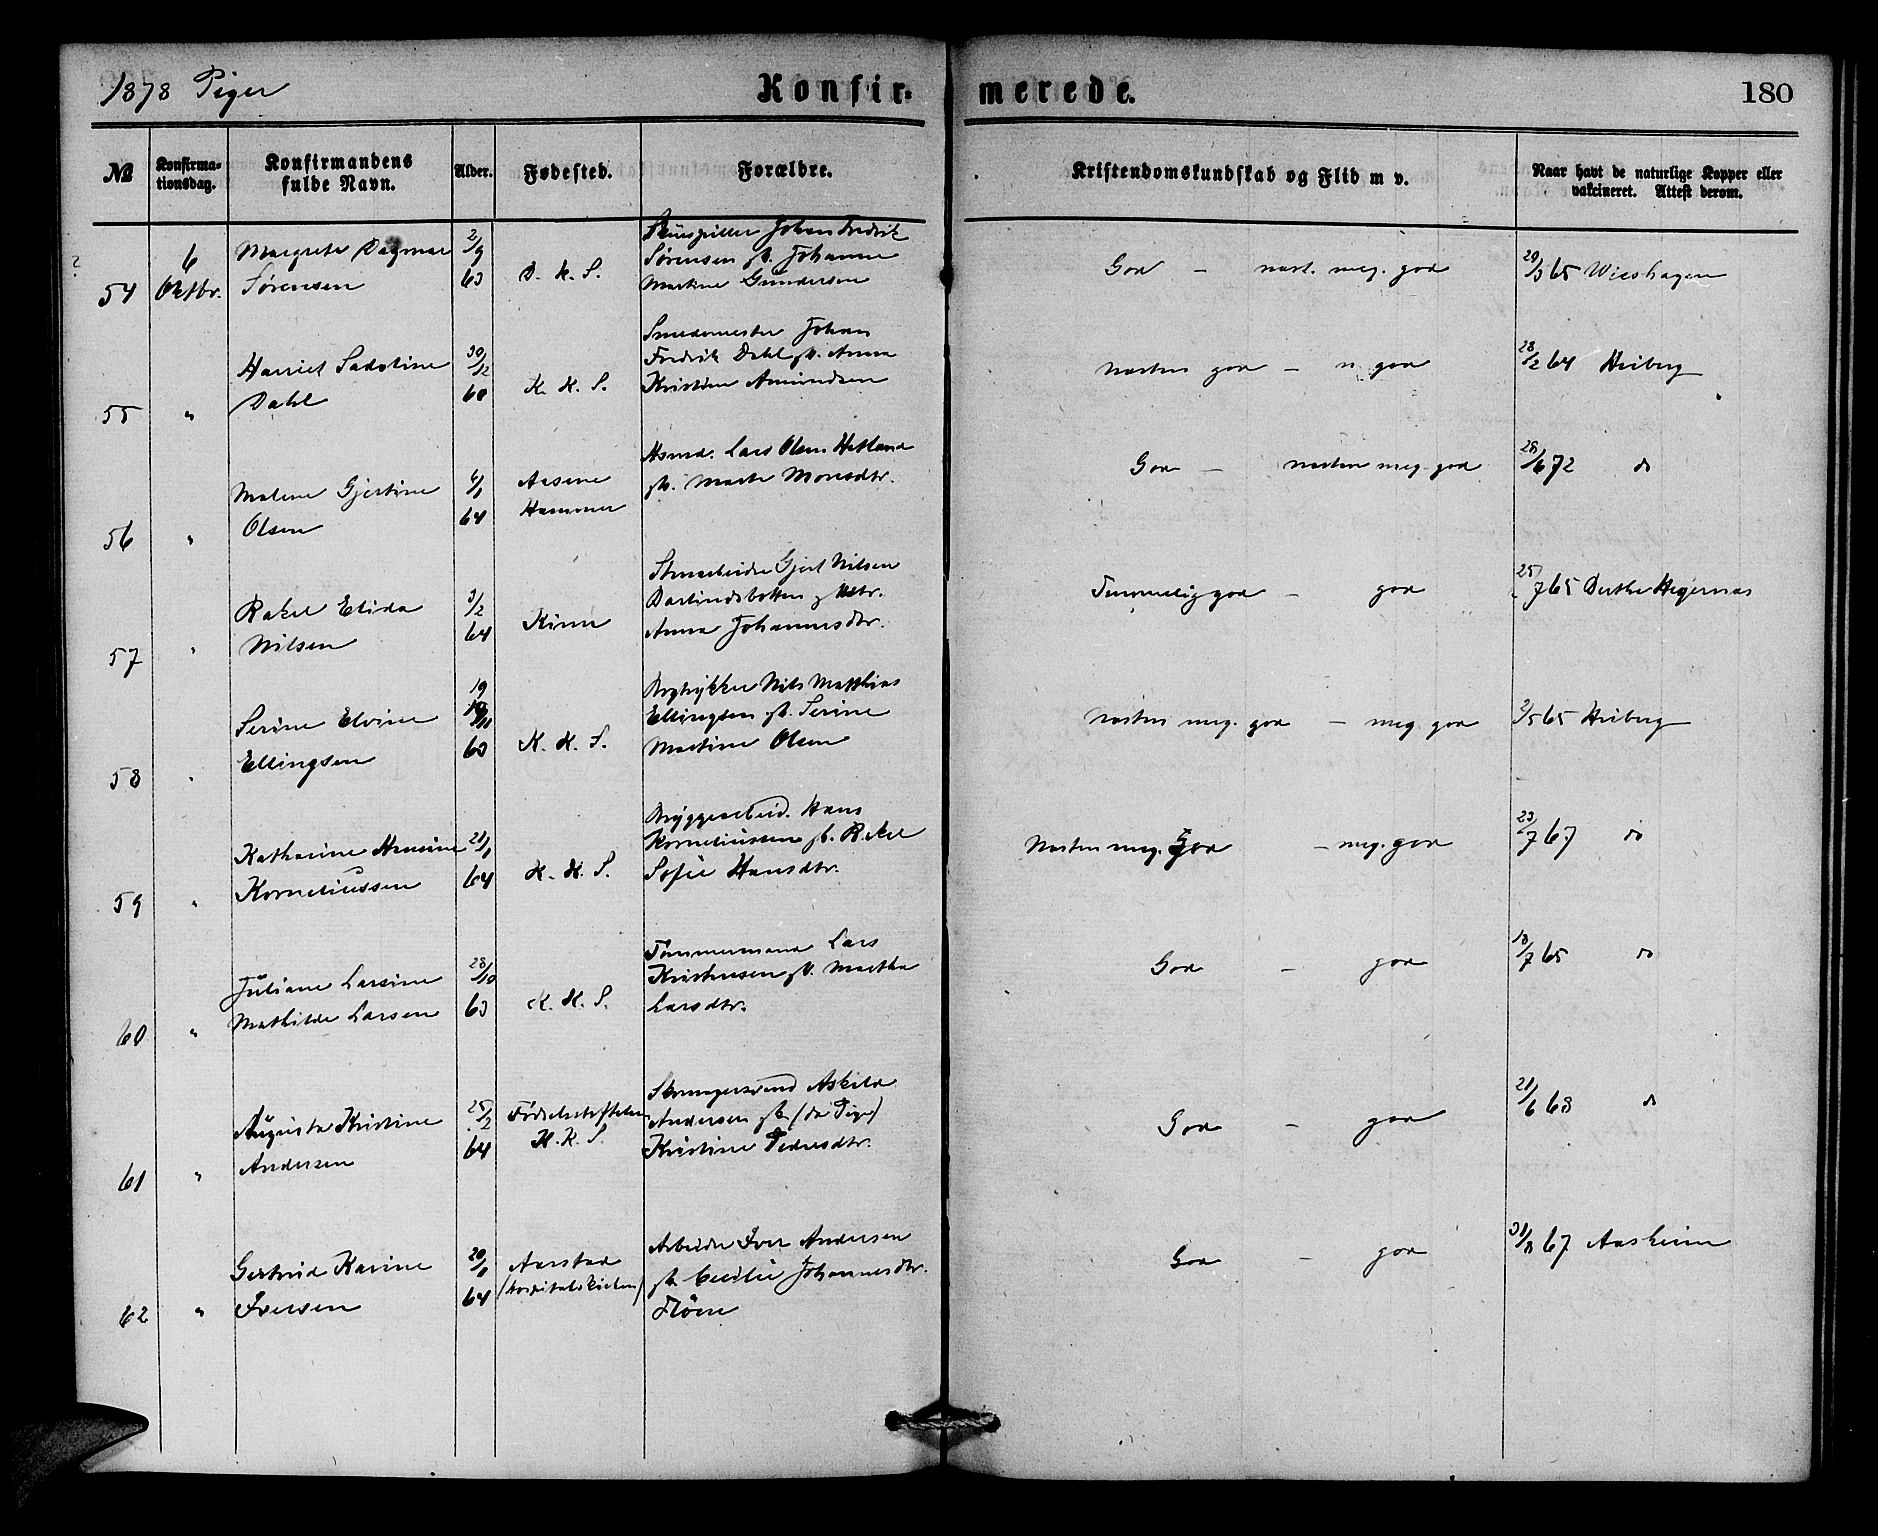 1878 Piger
Konfir-
merede.
180
№
Konfirma-
tionsdag.
Konfirmandens
fulde Navn.
Alder.
Fødested.
Forældre.
Kristendomskundskab og Flid m v.
Naar havt de naturlige Kopper eller
vakcineret. Attest derom.
54
6
Oktbr.
Margrete Dagmar
Sørensen
2/9
63
D. K. S.
Skuespiller Johan Fredrik
Sørensen gb. Johanne
Martine Gundersen
God - næst. meg. god
65 Wieshagen
55
"
Harriet
Dahl
30/12
60
K. K. S.
Smedemester Johan
Fredrik Dahl gb. Anna
Kristine Amundsen
Næsten god - n. god
28/2 64 Heiberg
56
"
Malene Gjertine
Olsen
64
Aasene
Hammer
Husmd. Lars Olsen Hetland
gb. Marte Monsdtr.
God - næsten meg. god
28/6 72 do
57
"
Rakel Elida
Nilsen
3/2
64
Kinn
Gjert Nilsen
Anna Johannesdtr.
Temmelig god - god
25/7 65
58
"
Serine Elvine
Ellingsen
19
11
63
K. K. S.
Bogtrykker Nils Matthias
Ellingsen gb. Serine
Martine Olsen
Næsten meg. god - meg. god
2/5 65 Heiberg
59
"
Katharine Hansine
Korneliussen
21/1
64
K. K. S.
Bryggearbeid. Hans
Korneliussen gb. Rakel
Sofie Hansdtr.
Næsten meg. God - meg. god
23/7 67 do
60
"
Juliane Larsine
Mathilde Larsen
28/10
63
K. K. S.
Tømmermand Lars
Kristensen gb. Martha
Larsdtr.
God - god
18/7 65 do
61
"
Augusta Kristine
Andersen
25/2
64
Fødselsstiftelsen
K. K. S.
Askild
Andersen gb. (da Pige)
Kristine Pedersdtr.
God - god
21/6 68 do
62
"
Gertrud Karine
Iversen
20/1
64
Aarstad
(Hospitalskirken)
Arbeider Iver Andersen
gb. Cecilie Johannesdtr.
Fløen
God - god
31/8 67 Aasheim